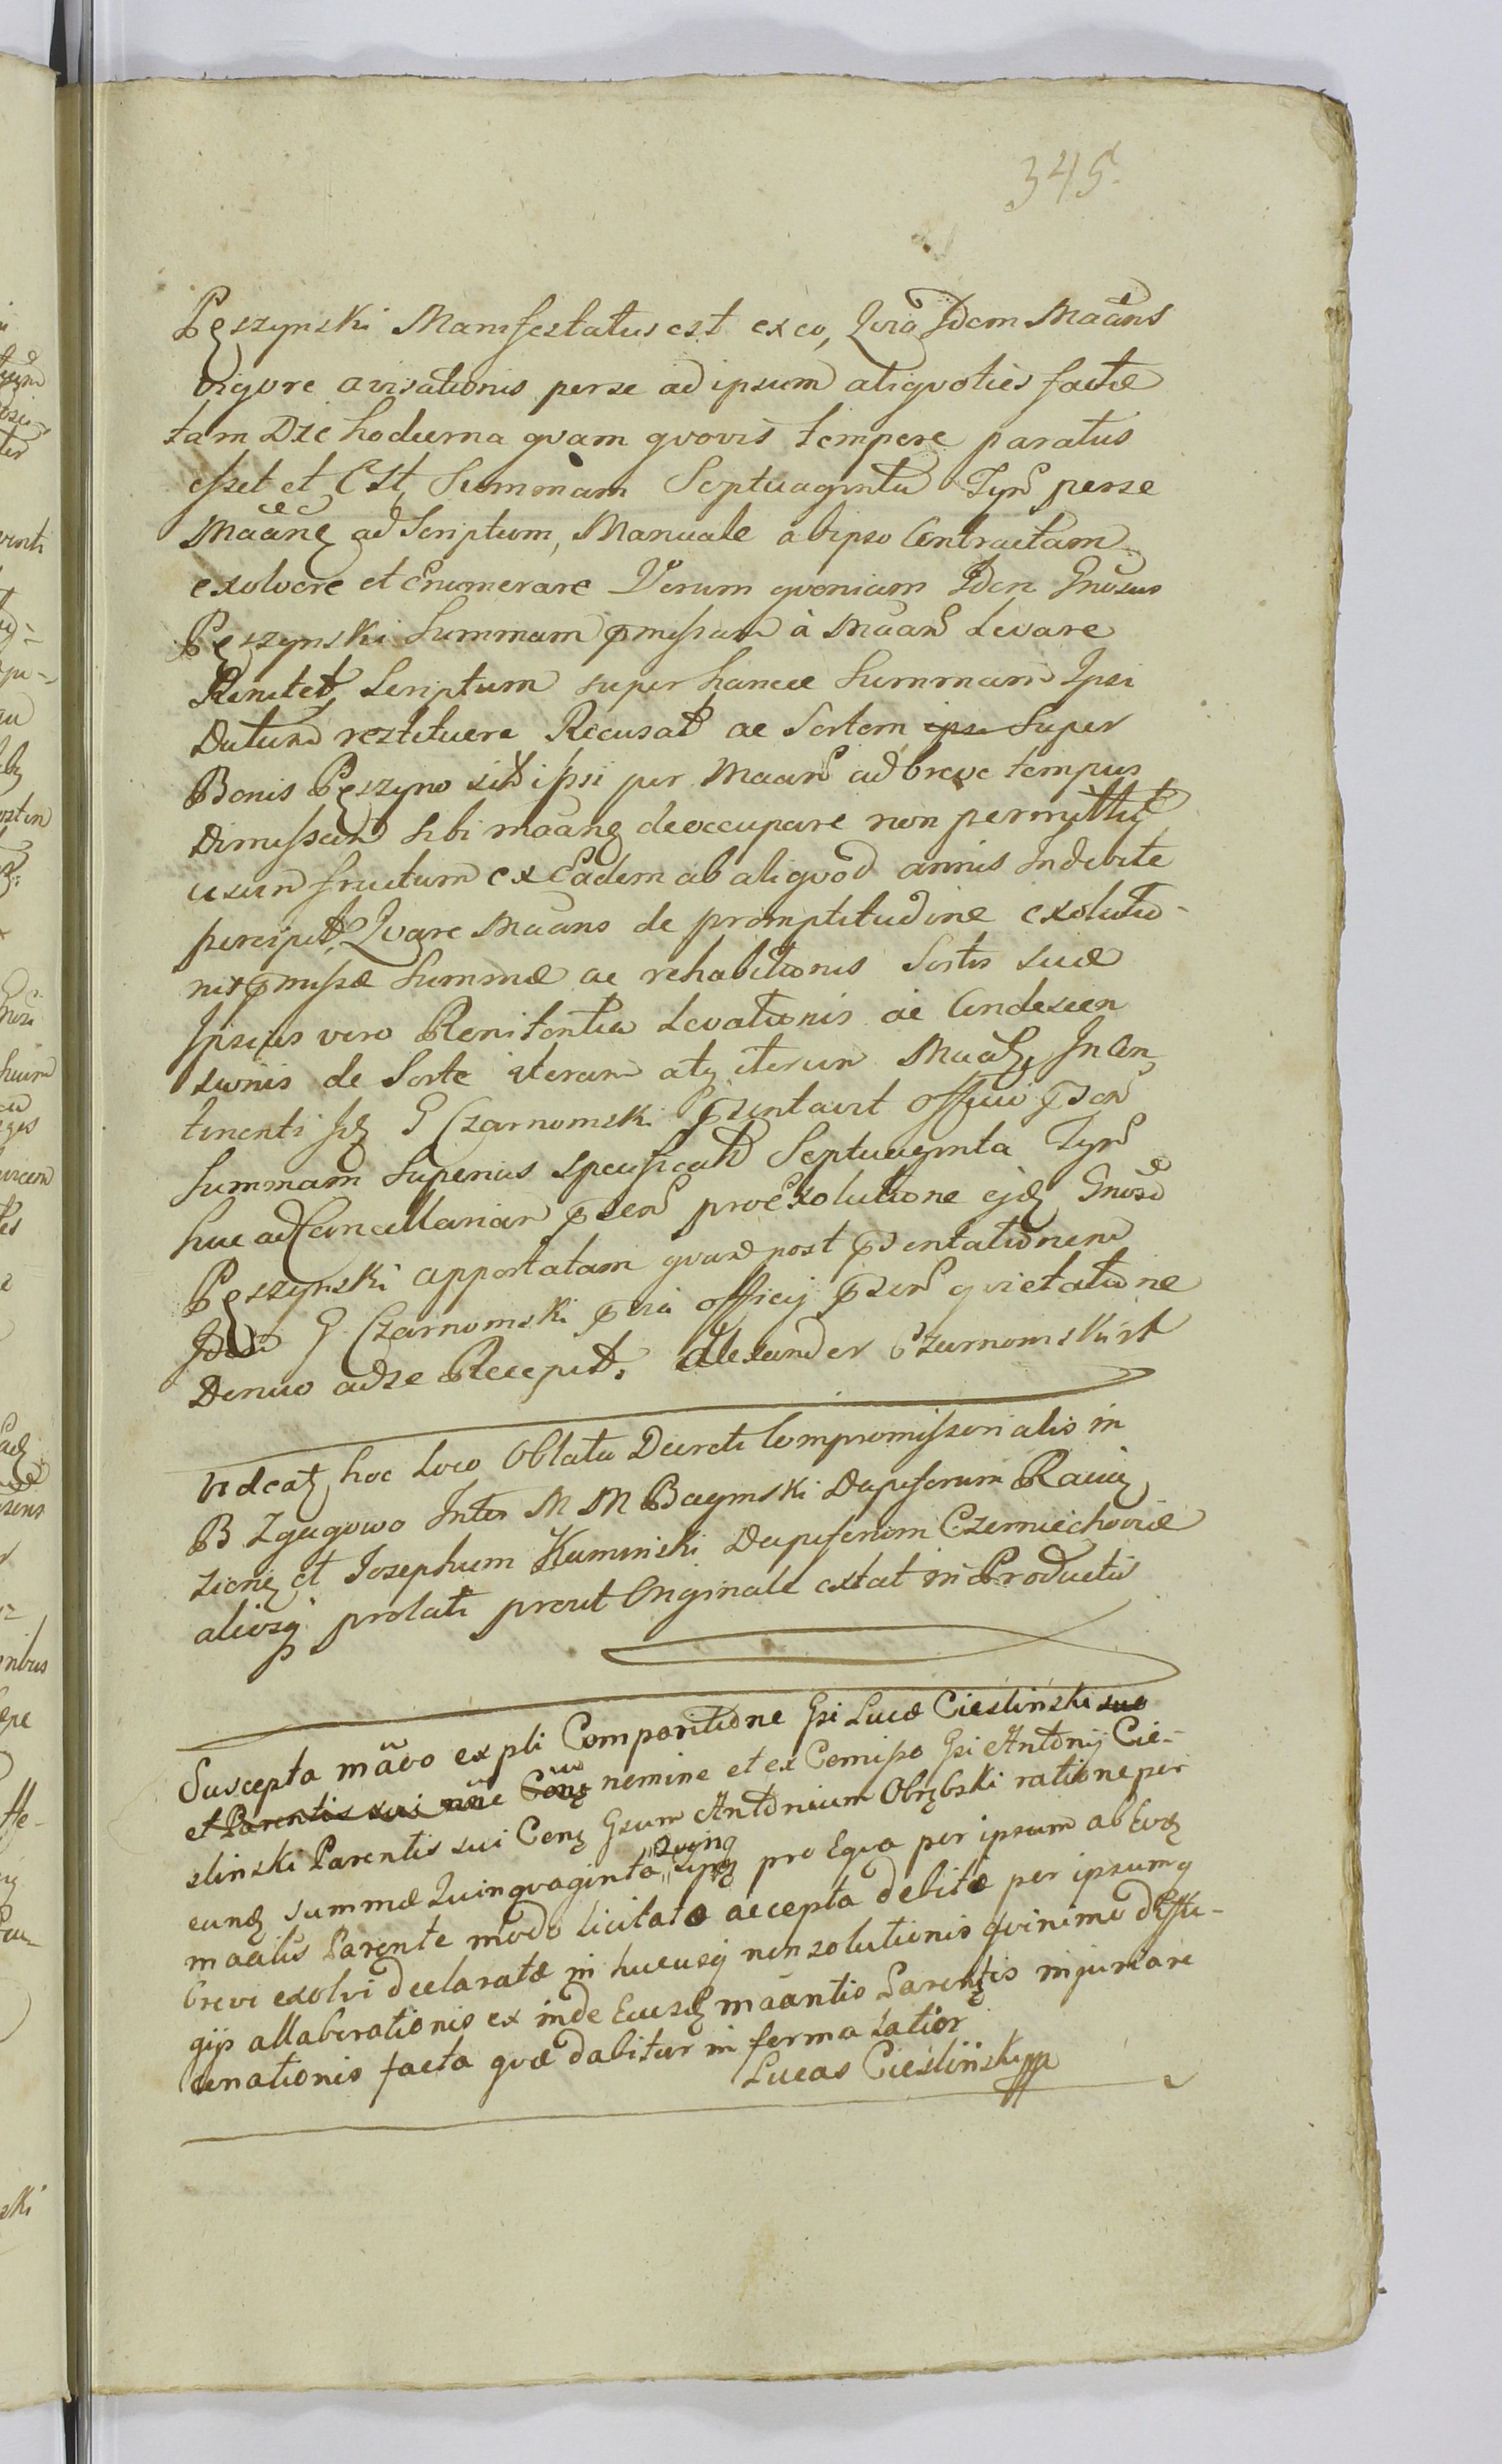 345.
Pęszynski Manifestatus est ex eo, Qvia Idem Maãns
vigore avisationis per se ad ipsum aliqvoties factæ
tam Die hodierna qvam qvovis tempere paratus
esset et Est Summam Septuaginta Tyn̄ per se
Maãnę ad Scriptum, Manuale ab ipso Contractam
exolvere et Enumerare Verum qvoniam Idem Gnosus
Pęszynski Summam pmissam à Maan̄ Levare
Renitet, Scriptum super hancce Summam Ipsi
Datum restituere Recusat ac Sortem super
Bonis Pęszyno sit ipsi per Maan̄ ad breve tempus
Dimissam sibi maanę deoccupare non permittit
usum fructum ex Eadem ab aliqvod annis Indebite
percipit, Qvare Maans de promptitudine exolutio-
nis pmissæ Summæ ac rehabitionis Sortis suæ
Ipsius vero Renitentia Levationis ac Condescen
sionis de Sorte iterum atq iterum Maatę, In Con
tinenti Idę G Czarnomski pzentavit Officio pzen̄
Summam Superius specificat Septuaginta Tyn̄
huc ad Cancellariam pzen̄ pro Exolutione ejdę Gnoso
Pęszynski apportatam qvam post pzentationem
G Czarnomski officij pzen̄ qvietatione
Denuo ad se Recepit. Alexander Czarnomski
Videatę hoc Loco Oblata Decreti Compromissorialis in
B Zgagowo Inter M M Baginski Dapiferum Raciąż
zienę et Iosephum Kaminski Dapiferum Czerniechoviæ
aliosq prolati prout Originale extat in Productis
Suscepta mãõo ex pli Comparitione Gsi Lucæ Cieslinski suo
et Parentis sui nõe Conę nomine et ex Comisso Gsi Antonij Cie-
slinski Parentis sui Conę Gsum Antonium Obrębski ratione per
eundę summæ Quinqvaginta Qvinq Tynę pro Eqva per ipsum ab Eodę
maãtis Parente modo licitato accepta debitæ per ipsumq
brevi exolvi declaratæ in hucusq non solutionis qvinimo diffu-
gijs allaborationis ex inde Eiusdę maãntis Parentis injuriare
cenationis facta qvæ dabitur in forma Latior
Lucas Cieslinski mpp